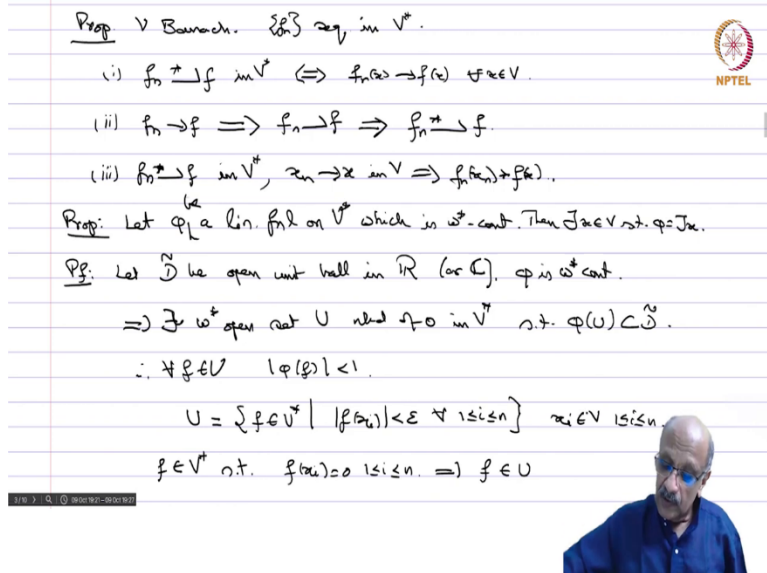 Prop. V Banach. {fn} seq in V*.
(i) fn *⇀ f in V* <=> fn(x) → f(x) ∀ x ∈ V.
(ii) fn → f => fn ⇀ f => fn *⇀ f.
(iii) fn *⇀ f in V*, xn → x in V => fn(xn) → f(x).
Prop: Let φ be a lin. fnl on V* which is w*-cont. Then ∃ x ∈ V s.t. φ = Jx.
Pf: Let D̃ be open unit ball in ℝ (or ℂ). φ is w* cont.
=> ∃ w* open set U nbd of 0 in V* s.t. φ(U) ⊂ D̃.
∴ ∀ f ∈ U |φ(f)| < 1.
U = {f ∈ V* | |f(xi)| < ε ∀ 1≤i≤n} xi ∈ V 1≤i≤n.
f ∈ V* s.t. f(xi) = 0 1≤i≤n. => f ∈ U
NPTEL
3/10
09 Oct 19:21-09 Oct 19:27